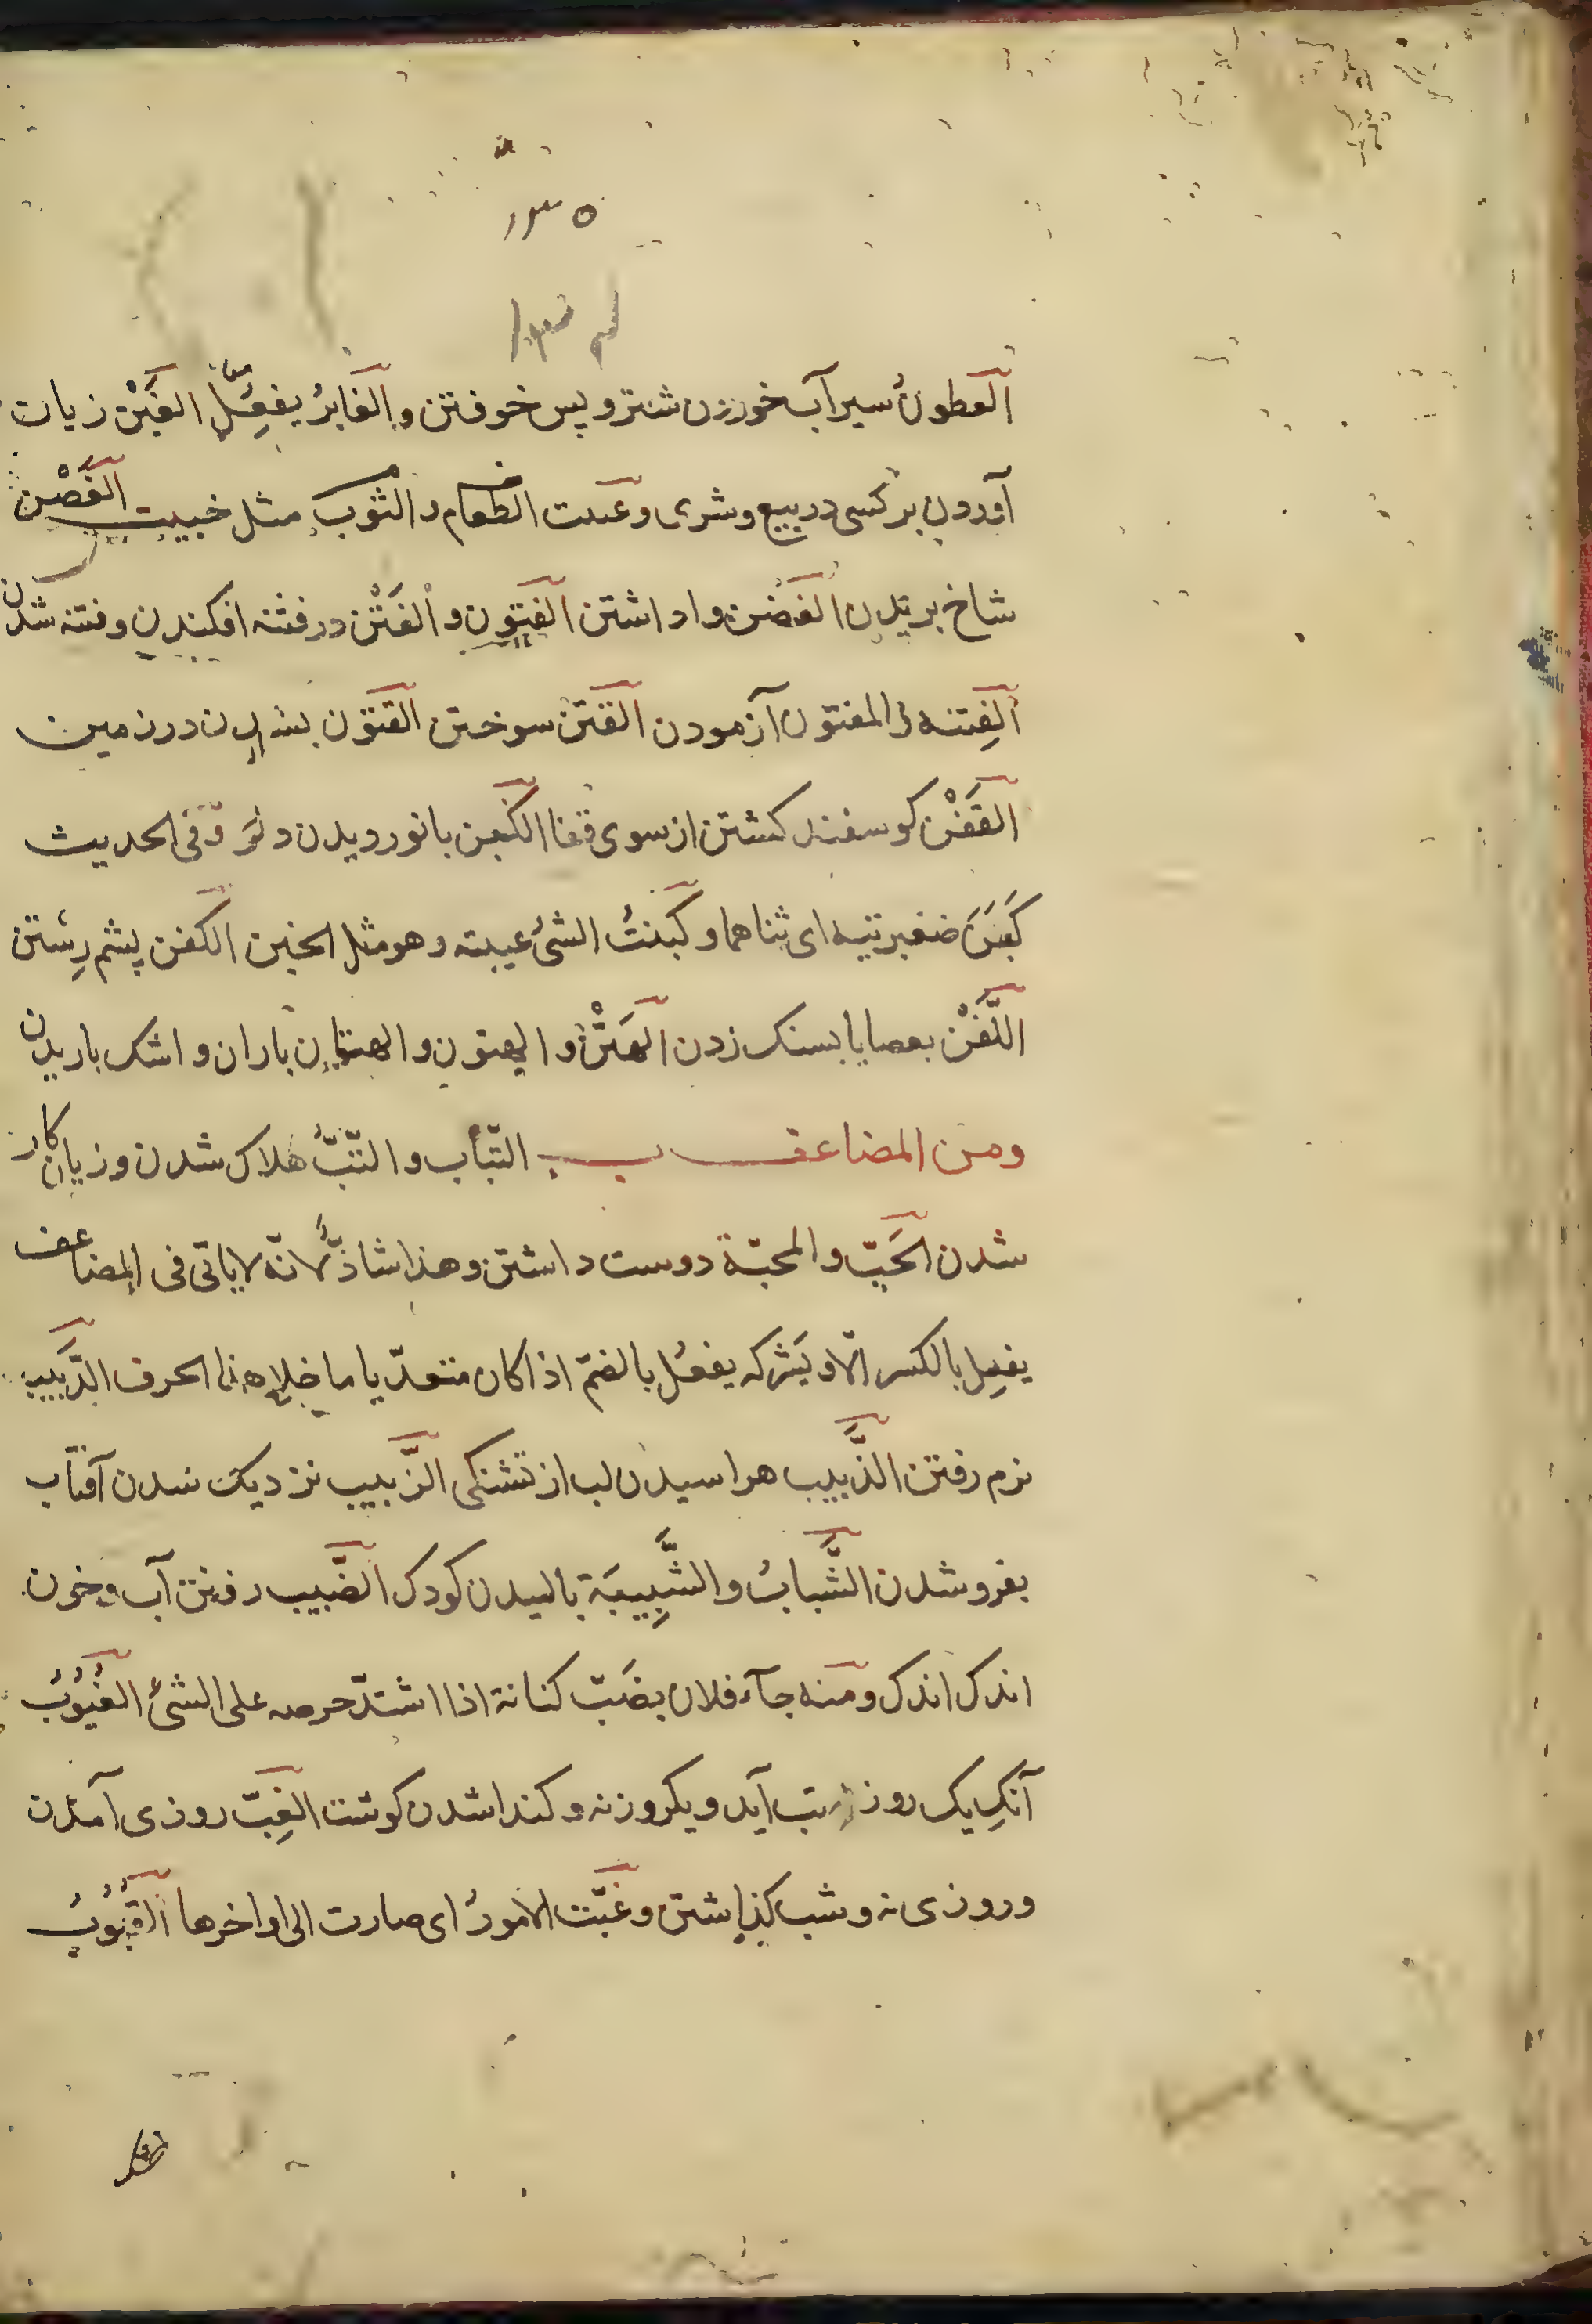 ۱۳۵
العطونُ سیرآب خوردن شتر و پس خوفتن و الغابرُ یفعِلُ الغَبْن زیان
آوردن بر کسی در بیع و شری و غبنت الطعام و الثوب مثل خبنت الغَصْن
شاخ بریدن الغضن وا داشتن الفتون و الفَتْن در فتنه افکندن و فتنه شدن
الفِتنه و المفتون آزمودن الفَتن سوختن القتون بشدن در زمین
القَفْن کوسفند کشتن از سوی قفا الکَبن بانوردیدن دلو و فی الحدیث
کَبَنَ ضفیرتیه ای ثناهما و کبنتُ الشئ غیبته و هو مثل الخبن الکفن پشم رِشتن
اللَّفْن بعصا یا بسنک زدن الهَتْن و الهتون و الهتان باران و اشک باریدن
ومن المضاعف ب التّباب و التّبُّ هلاک شدن و زیان کار
شدن الحَبّ و المحبّة دوست داشتن و هذا شاذّ لانّه لا یاتی فی المضاعف
یفعِل بالکسر الّا و یَشرکه یفعُل بالضمّ اذا کان متعدّیا ما خلا هذا الحرف الدَّبیب
نرم رفتن الذَّبیب هواسیدن لب از تشنکی الزَّبیب نزدیک شدن آفتاب
بفرو شدن الشَّبابُ و الشَّبِیبَة بالیدن کودک الضَّبیب رفتن آب و خون
اندک اندک و منه جآء فلان یضَبّ کنانة اذا اشتدّ حرصه علی الشئ الغُبُوبُ
آنکِ یک روز تب آید و یکروز نه و کندا شدن کوشت الغِبّ روزی آمدن
و روزی نه و شب کذاشتن و غبَّت الامورُ ای صارت الی اواخرها القُبُوبُ